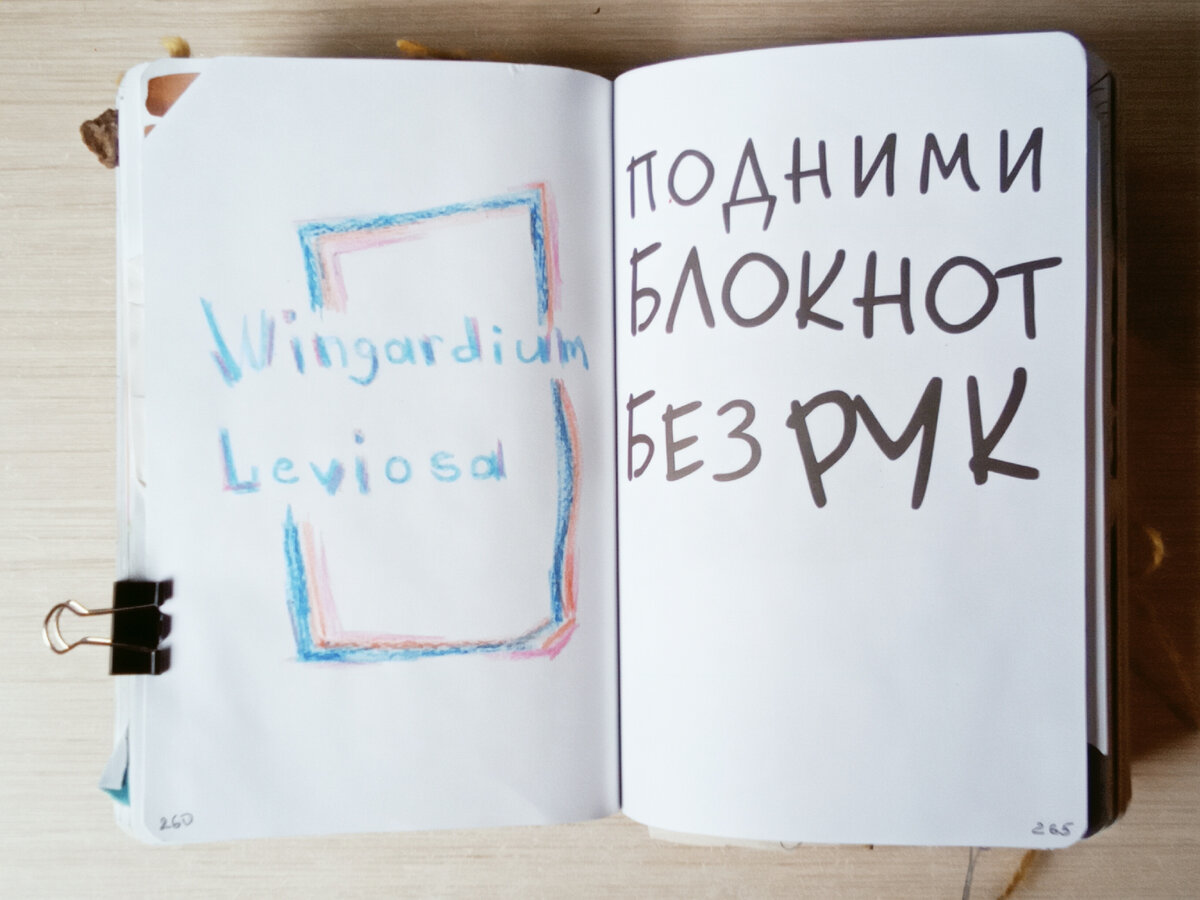 Wingardium
Leviosa
260
ПОДНИМИ
БЛОКНОТ
БЕЗ РУК
265